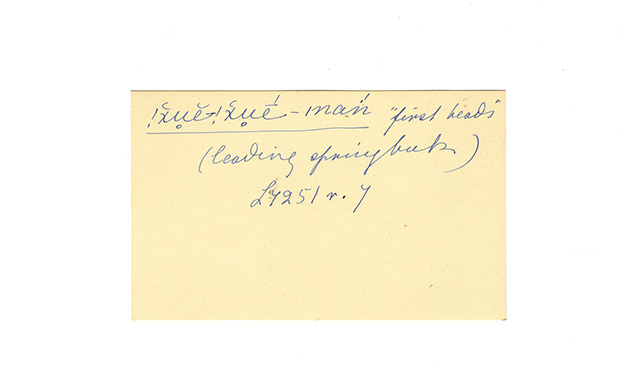 !x̆u̥ĕ-!x̆u̥é-mań "first heads"
(leading springbuck)
L4251 r. 7